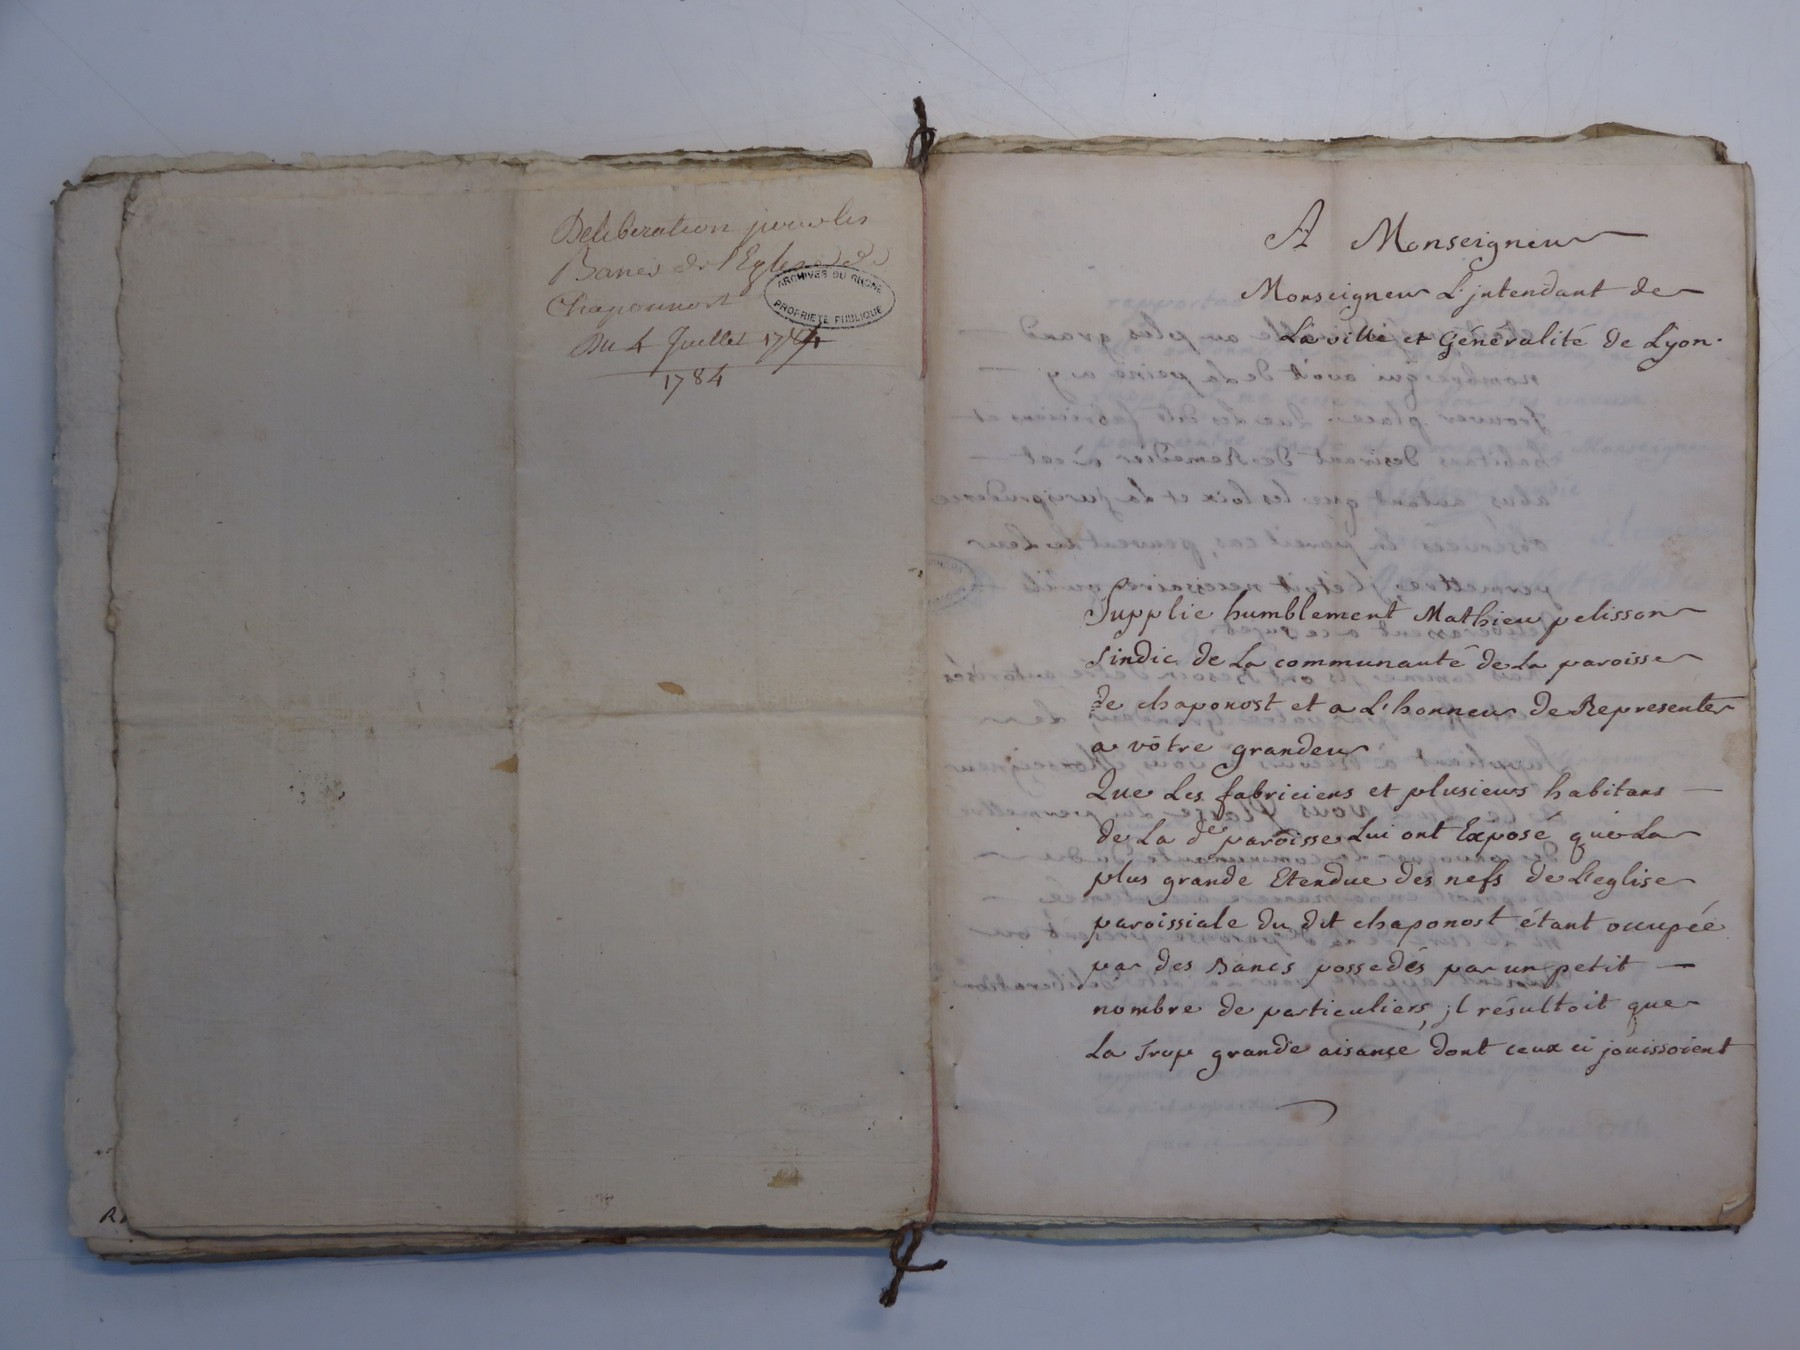 Deliberation pour les
Bancs de l'Eglise de
Chaponnost
Du 4 Juillet 1784
1784
ARCHIVES DU RHONE
PROPRIETE PUBLIQUE
A Monseigneur
Monseigneur L'jntendant de
La ville et Généralité de Lyon.
Supplie humblement Mathieu pelisson
sindic de La communauté de La paroisse
de chaponost et a L'honneur de Representer
a vôtre grandeur
Que Les fabriciens et plusieurs habitans
de La de paroisse Lui ont Exposé que La
plus grande Etendue des nefs de L'eglise
paroissiale du dit chaponost étant occupée
par des Bancs possedés par un petit
nombre de particuliers, jl résultoit que
La trop grande aisance dont ceux ci jouissoient